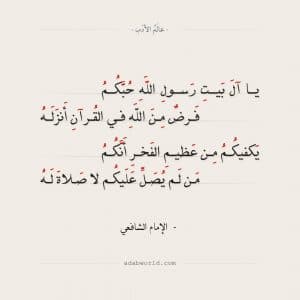 - عالم الأدب -
يـا آلَ بَيـتِ رَسـولِ اللَهِ حُبَّكُـمُ
فَـرضٌ مِـنَ اللَهِ فـي القُـرآنِ أَنزَلَـهُ
يَكفيكُـمُ مِـن عَظيـمِ الفَخـرِ أَنَّكُـمُ
مَـن لَـم يُصَـلِّ عَلَيكُـم لا صَـلاةَ لَـهُ
- الإمام الشافعي
adabworld.com